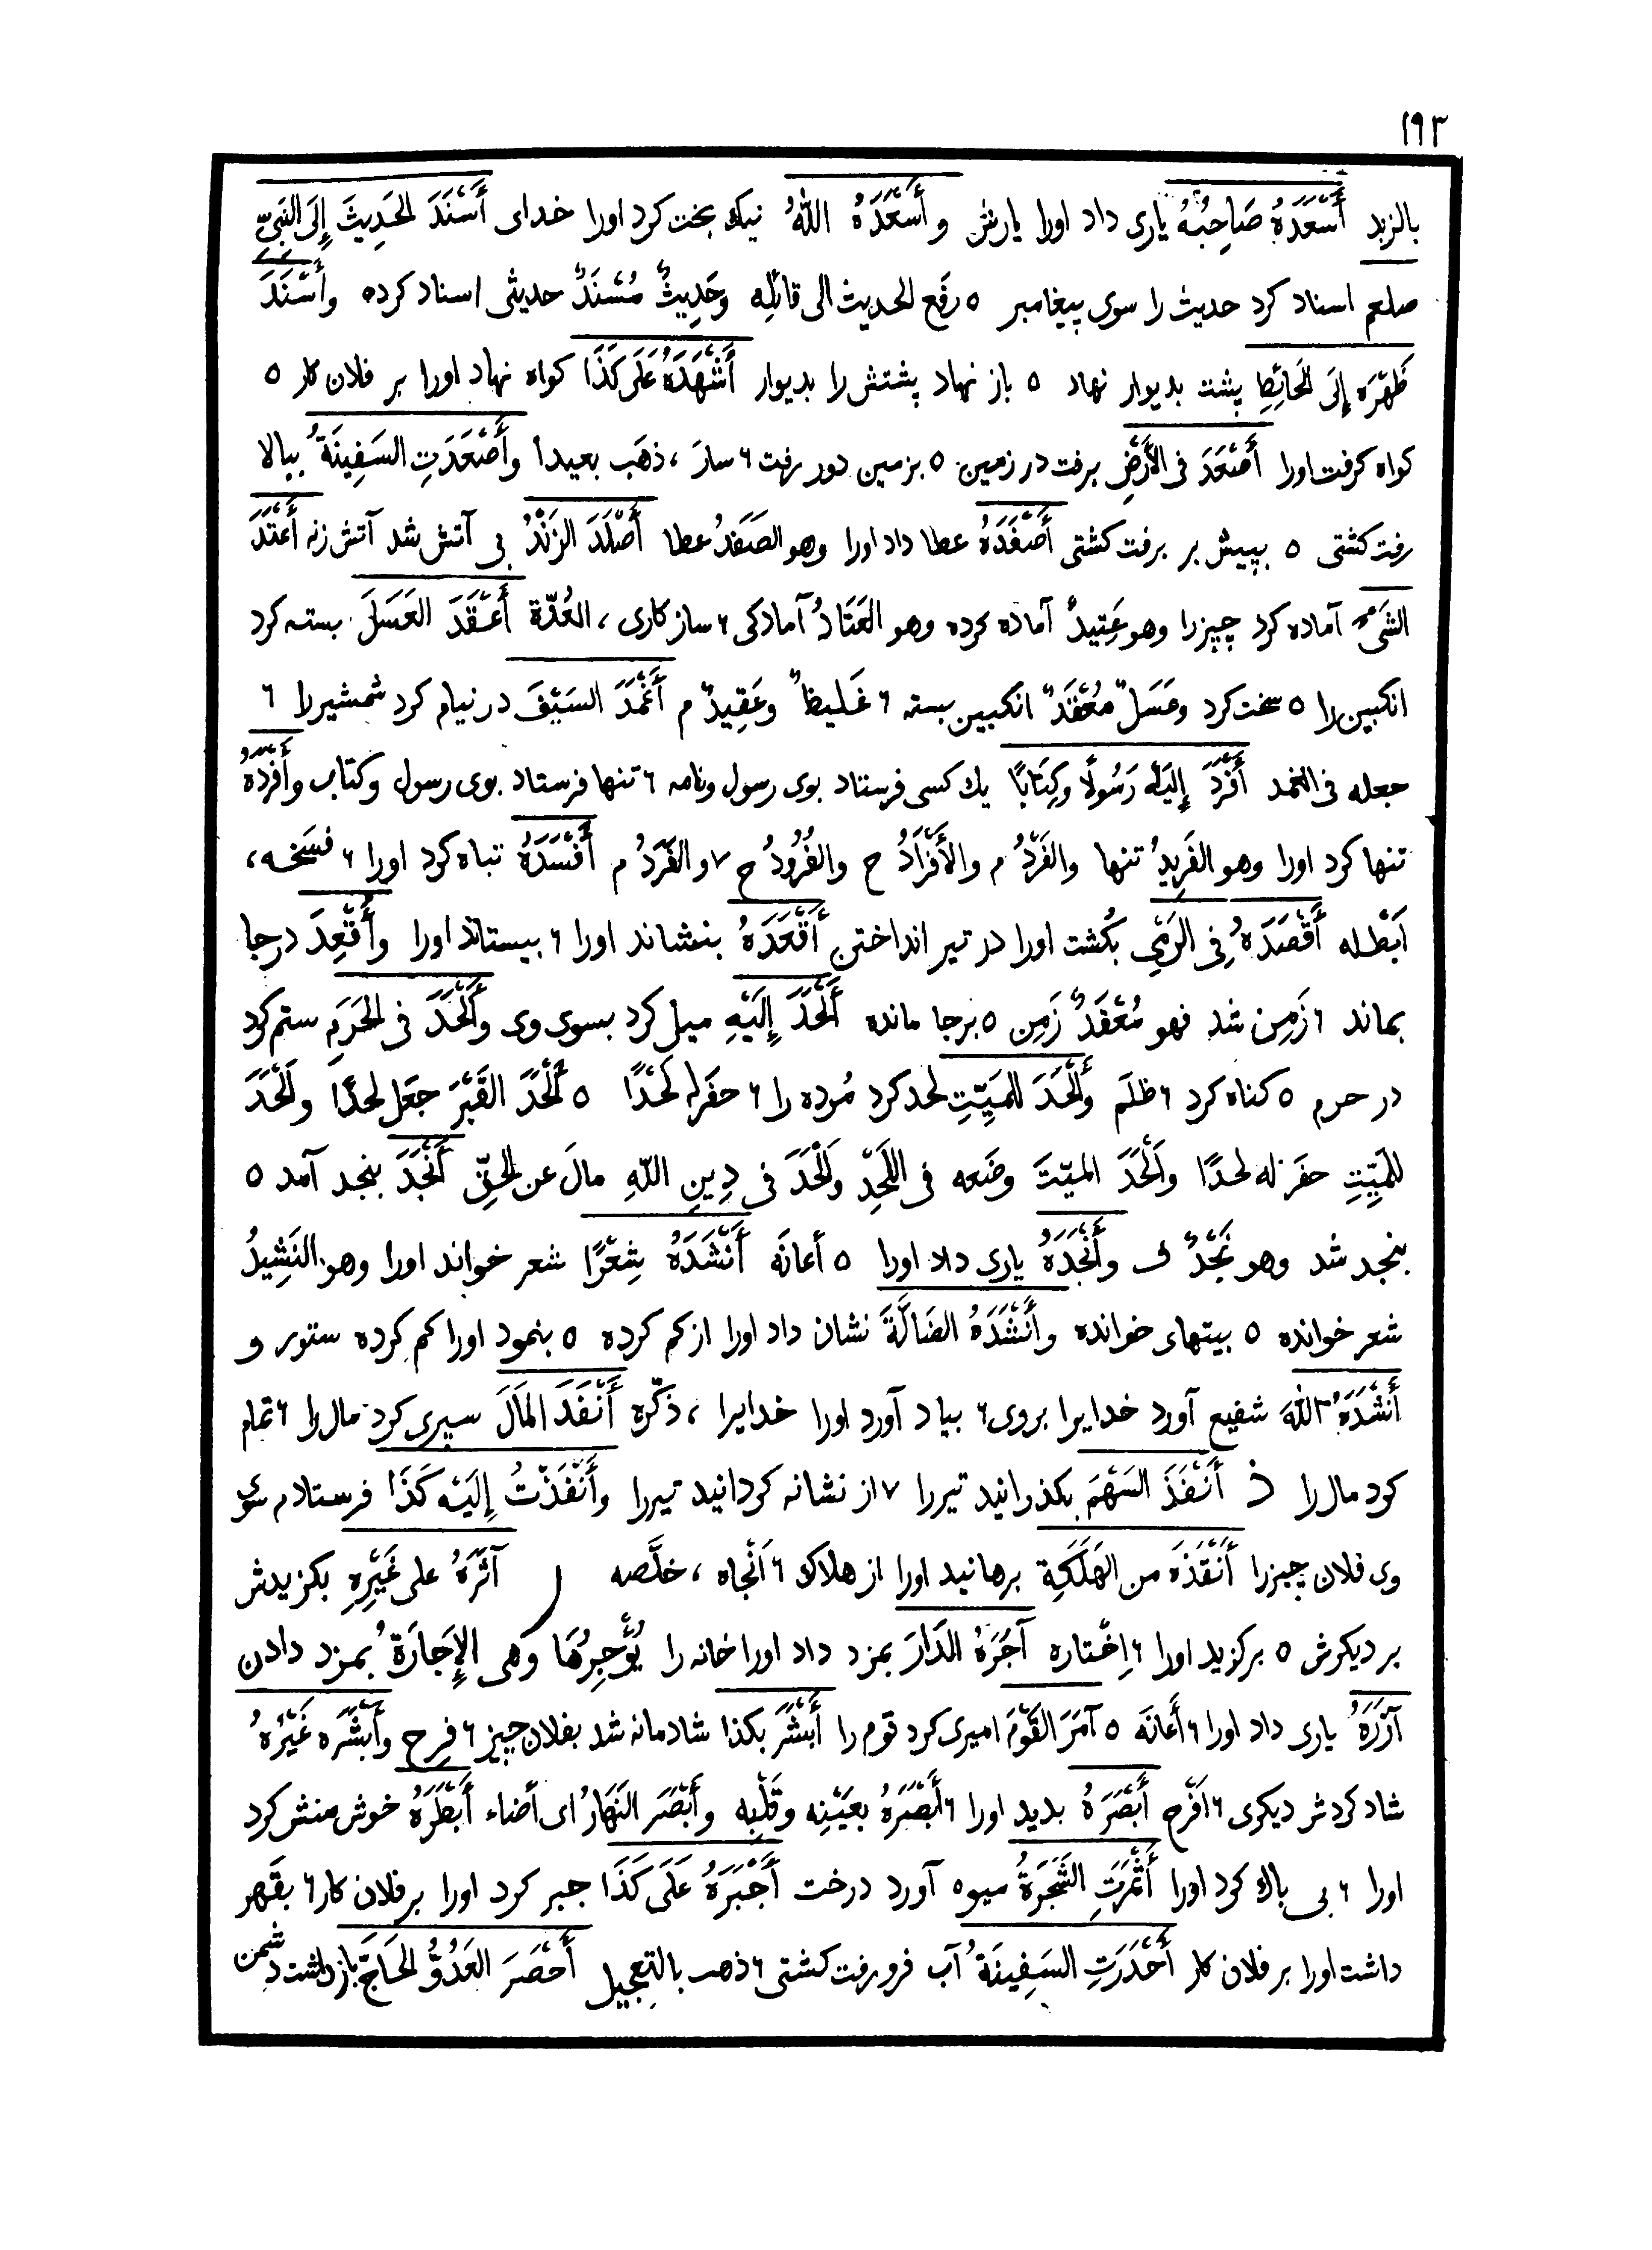 ١٩٣
بالزبد أَسْعَدَهُ صَاحِبُهُ یاری داد اورا یارش و أَسْعَدَهُ اللهُ نیك بخت کرد اورا خدای أَسْنَدَ الحَدِيثَ إِلَى النَبِيِّ
صلعم اسناد کرد حدیث را سوی پیغامبر ٥ رفَع الحدیث الی قائلِه وحَدِيثٌ مُسْنَدٌ حدیثی اسناد کرده وأَسْنَدَ
ظَهْرَه إِلَى الحَائِطِ پشت بدیوار نهاد ٥ باز نهاد پشتش را بدیوار أَشْهَدَهُ عَلَى كَذَا کواه نهاد اورا بر فلان کار ٥
کواه کرفت اورا أَصْعَدَ فِى الأَرْضِ برفت در زمین ٥ بزمین دور رفت ٦ سارَ ، ذهَب بعیداً وأَصْعَدَتِ السَفِينَةُ ببالا
رفت کشتی ٥ بپیش بر برفت کشتی أَصْفَدَهُ عطا داد اورا وهو الصَفَدُ عطا أَصْلَدَ الزَنْدُ بی آتش شد آتش زنه أَعْتَدَ
الشَىْءَ آماده کرد چیزرا وهو عَتِيدٌ آماده کرده وهو العَتَادُ آمادکی ٦ ساز کاری ، العُدّة أَعْقَدَ العَسَلَ بسته کرد
انکبین را ٥ سخت کرد وعَسَلٌ مُعْقَدٌ انکبین بسته ٦ غَلیظاً وعَقِيدٌ م أَغْمَدَ السَيْفَ در نیام کرد شمشیر را ٦
جعله فی الغمد أَفْرَدَ إِلَيْهِ رَسُولًا وكِتَابًا یك کسی فرستاد بوی رسول ونامه ٦ تنها فرستاد بوی رسول وکتاب وأَفْرَدَهُ
تنها کرد اورا وهو الفَرِيدُ تنها والفَرْدُ م والأَفْرَادُ ح والفُرُودُ ح ٧ والفَرَدُ م أَفْسَدَهُ تباه کرد اورا ٦ فسَخه ،
اَبْطله أَقْصَدَهُ فِى الرَمْىِ بکُشت اورا در تیر انداختن أَقْعَدَهُ بنشاند اورا ٦ بیستاند اورا وأُقْعِدَ درجا
بماند ٦ زَمِن شد فهو مُقْعَدٌ زَمِن ٥ برجا مانده أَلْحَدَ إِلَيْهِ میل کرد بسوی وی وأَلْحَدَ فى الحَرَمِ ستم کرد
در حرم ٥ کناه کرد ٦ ظلَم وأَلْحَدَ للمَيِّتِ لحد کرد مُرده را ٦ حفَر له لَحْدًا ٥ أَلْحَدَ القَبْرَ جعَل لحدًا ولَحَدَ
للمَيِّتِ حفَر له لحدًا وأَلْحَدَ المیّتَ وضَعه فى اللَحْدِ ولَحَدَ فى دِينِ اللّهِ مالَ عن الحقّ أَنْجَدَ بنجد آمد ٥
بنجد شد وهو نَجْدٌ ف وأَنْجَدَهُ یاری داد اورا ٥ أعانَه أَنْشَدَهُ شِعْرًا شعر خواند اورا وهو النَشِيدُ
شعر خوانده ٥ بیتهای خوانده وأَنْشَدَهُ الضَالَّةَ نشان داد اورا از کم کرده ٥ بنمود اورا کم کرده ستور و
أَنْشَدَهُ اللهَ شفیع آورد خدایرا بروی ٦ بیاد آورد اورا خدایرا ، ذکّره أَنْفَدَ المَالَ سپری کرد مال را ٦ تمام
کرد مال را ذ أَنْفَذَ السَهْمَ بکذرانید تیررا ٧ از نشانه کردانید تیررا وأَنْفَذْتُ إِلَيْهِ كَذَا فرستادم سوی
وی فلان چیزرا أَنْقَذَهُ من الهَلَكَةِ برهانید اورا از هلاك ٦ أَنْجاه ، خلَّصه ر آثَرَهُ على غَيْرِهِ بکزیدش
بر دیکرش ٥ برکزید اورا ٦ اِخْتاره آجَرَهُ الدَارَ بمزد داد اورا خانه را يُؤْجِرُهَا وهى الإِجَارَةُ بمزد دادن
آزَرَهُ یاری داد اورا ٦ أَعانَه ٥ آمَرَ القَوْمَ امیری کرد قوم را أَبْشَرَ بكذا شادمانه شد بفلان چیز ٦ فرِح وأَبْشَرَه غَيْرُهُ
شاد کردش دیکری ٦ افْرح أَبْصَرَهُ بدید اورا ٦ أَبْصَرَهُ بعَيْنِه وقَلْبِه وأَبْصَرَ النَهَارُ ای أضاء أَبْطَرَهُ خوش منش کرد
اورا ٦ بی باك کرد اورا أَثْمَرَتِ الشَجَرَةُ میوه آورد درخت أَجْبَرَهُ عَلَى كَذَا جبر کرد اورا بر فلان کار ٦ بقَهر
داشت اورا بر فلان کار أَحْدَرَتِ السَفِينَةُ آب فرو رفت کشتی ٦ ذهب بالتعجیل أَحْصَرَ العَدُوُّ الحَاجَّ بازداشت دشمن